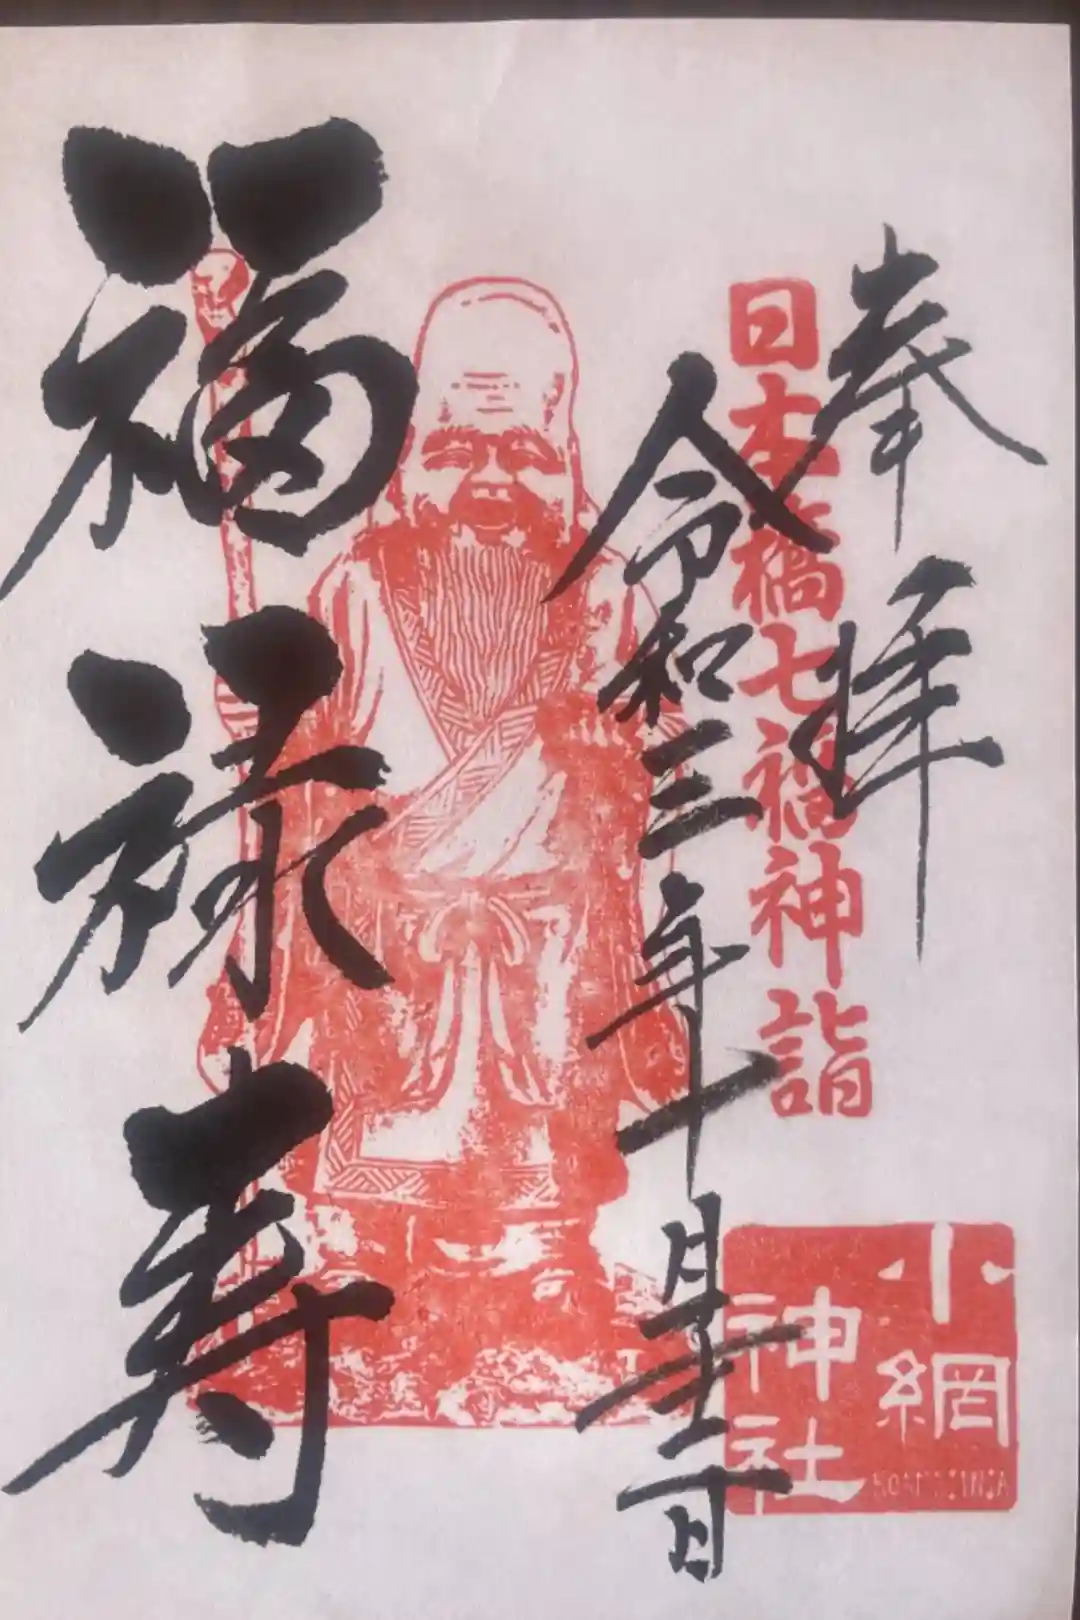 奉拝
日本橋七福神詣
小網
神社
令和三年
月
日
福禄寿